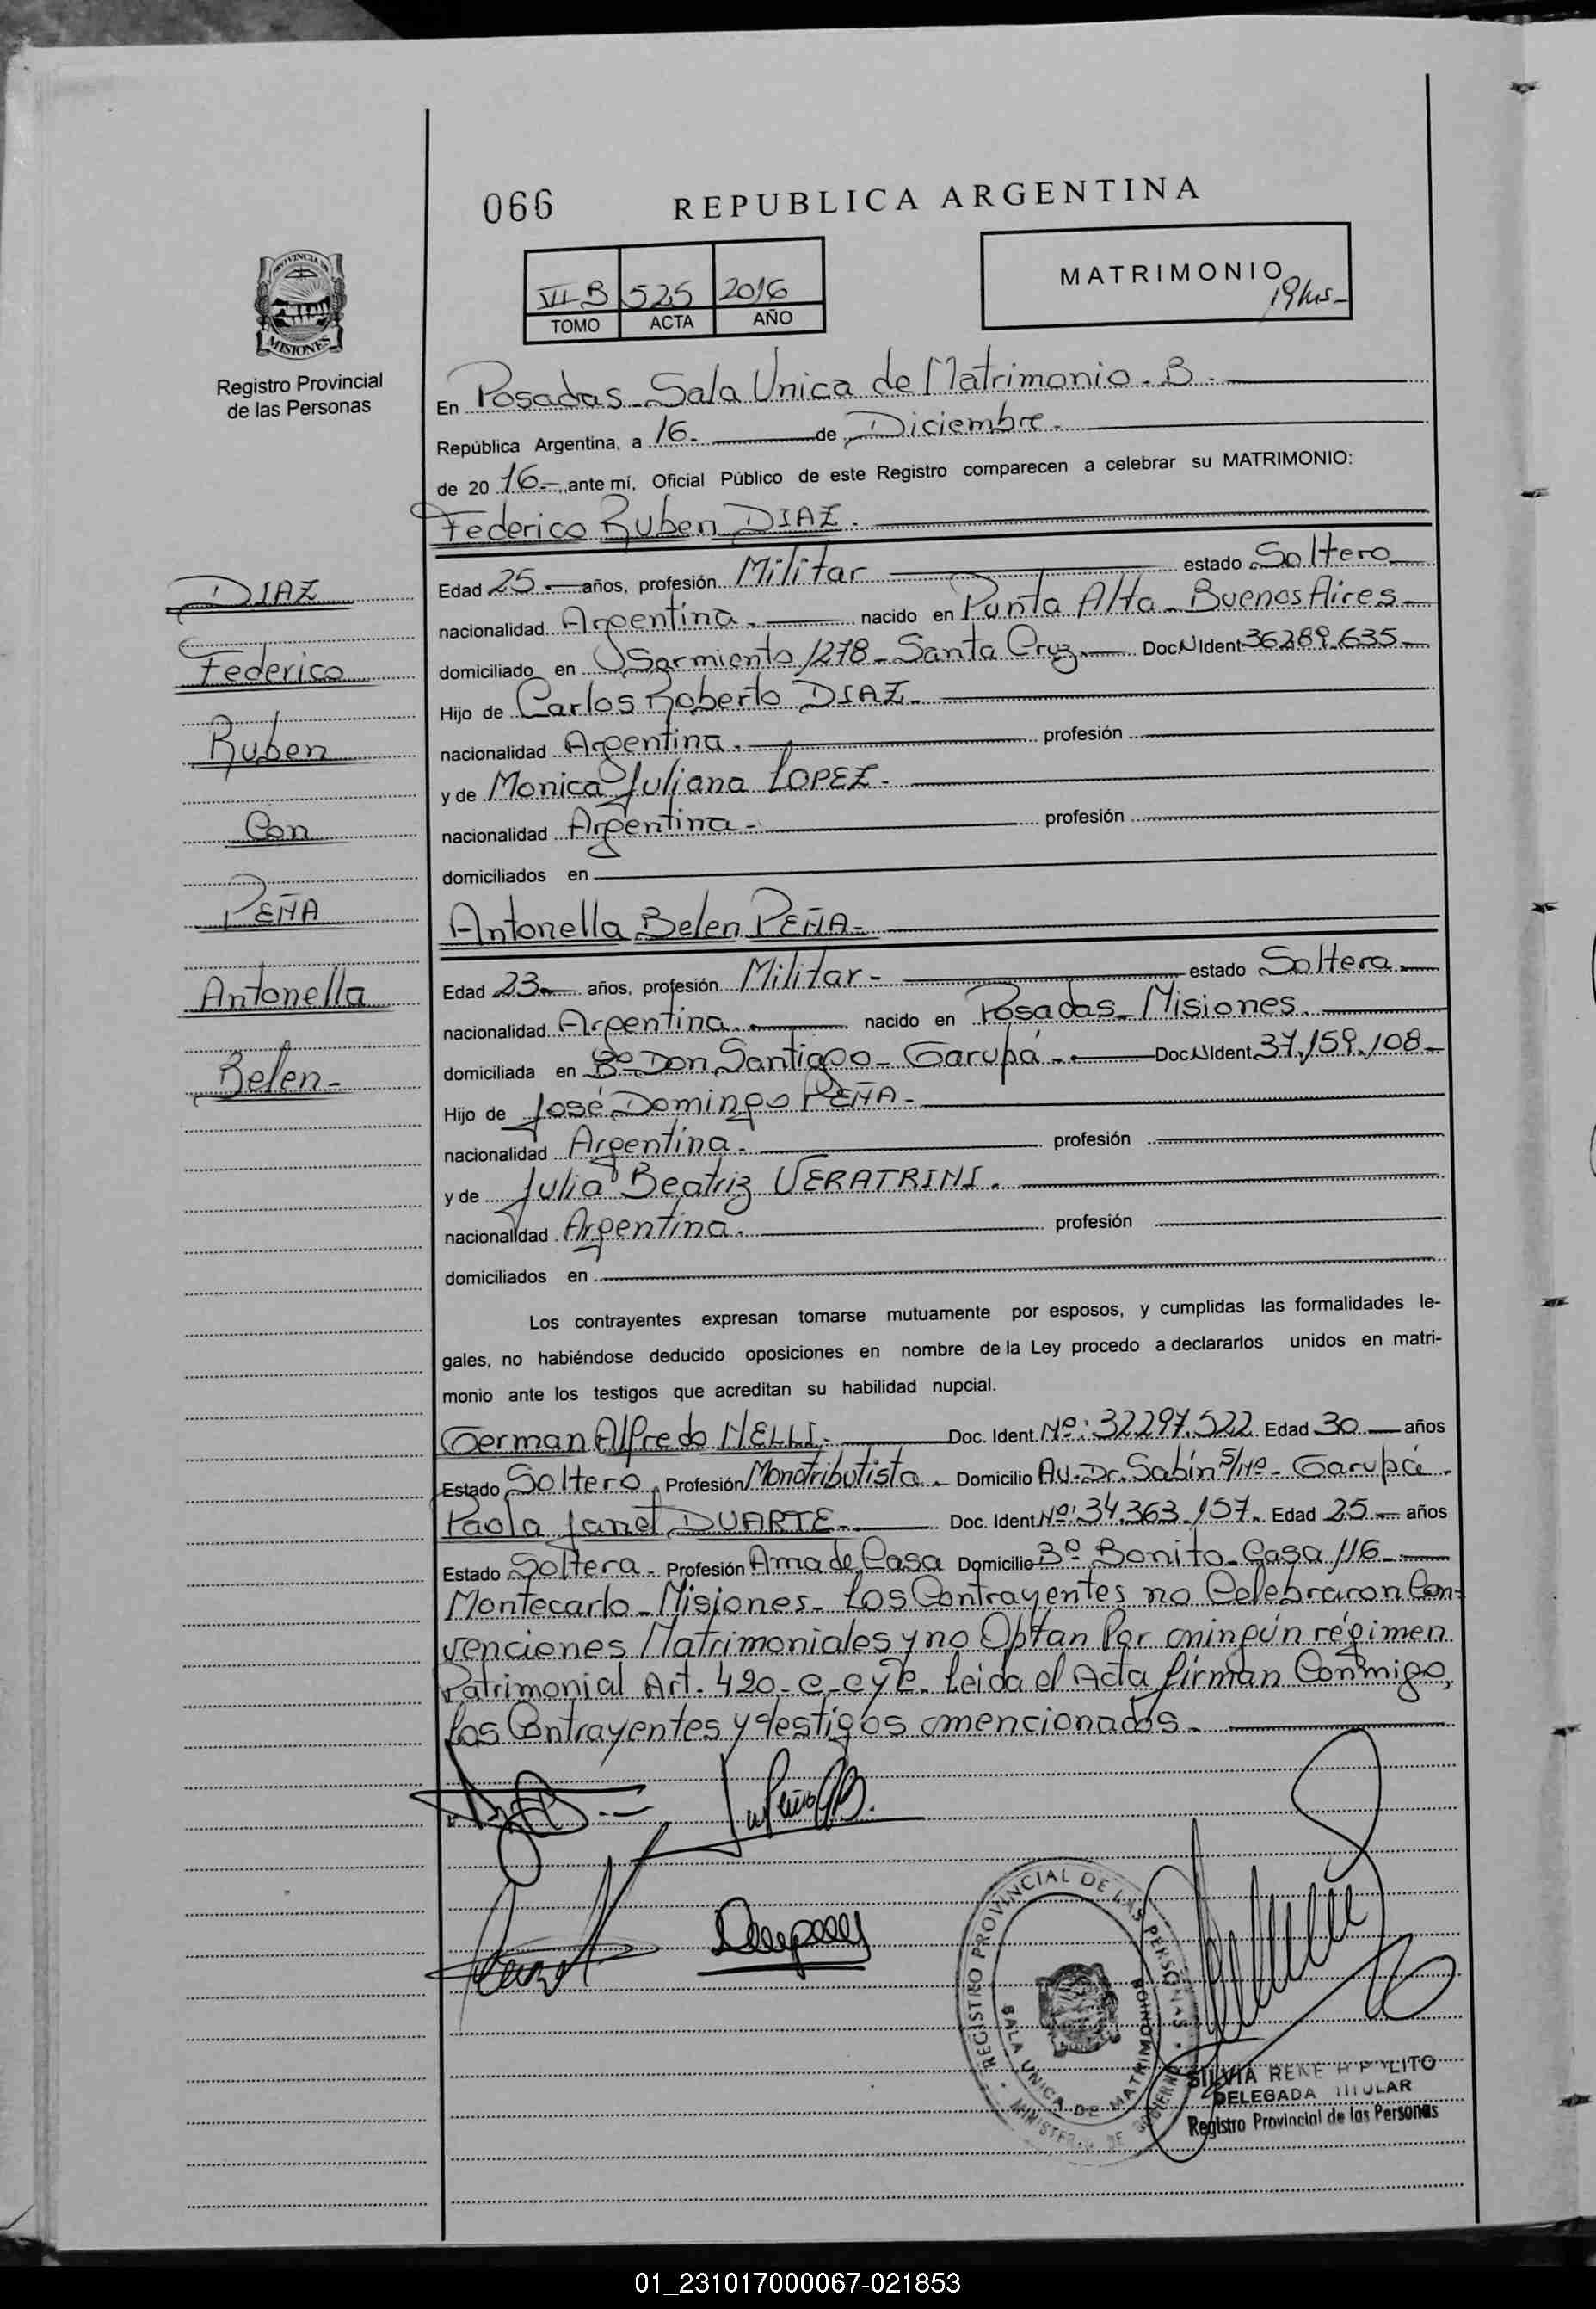 066
REPUBLICA ARGENTINA
PROVINCIA DE
MISIONES
Registro Provincial
de las Personas
VI B 525 2016
TOMO ACTA AÑO
MATRIMONIO
19 hs-
En Posadas - Sala Unica de Matrimonio - B -
República Argentina, a 16- de Diciembre-
de 2016-, ante mí, Oficial Público de este Registro comparecen a celebrar su MATRIMONIO:
Federico Ruben DIAZ-
Edad 25- años, profesión Militar estado Soltero
nacionalidad Argentina- nacido en Punta Alta - Buenos Aires-
domiciliado en Sarmiento 1278 - Santa Cruz Doc N Ident 36289.635-
Hijo de Carlos Roberto DIAZ-
nacionalidad Argentina- profesión
y de Monica Juliana LOPEZ-
nacionalidad Argentina- profesión
domiciliados en
Antonella Belen PEÑA-
Edad 23- años, profesión Militar- estado Soltera-
nacionalidad Argentina- nacido en Posadas - Misiones.
domiciliada en Bº Don Santiago - Garupá - Doc N Ident 37.159.108-
Hijo de José Domingo PEÑA-
nacionalidad Argentina- profesión
y de Julia Beatriz VERATRINI.
nacionalidad Argentina. profesión
domiciliados en
DIAZ
Federico
Ruben
Con
PEÑA
Antonella
Belen-
Los contrayentes expresan tomarse mutuamente por esposos, y cumplidas las formalidades le-
gales, no habiéndose deducido oposiciones en nombre de la Ley procedo a declararlos unidos en matri-
monio ante los testigos que acreditan su habilidad nupcial.
German Alfredo NELLI- Doc. Ident Nº: 32297.522 Edad 30 años
Estado Soltero. Profesión Monotributista. Domicilio Av. Dr. Sabín S/Nº - Garupá -
Paola Janet DUARTE- Doc. Ident Nº: 34.363.157. Edad 25- años
Estado Soltera - Profesión Ama de Casa Domicilio Bº Bonito - Casa 116-
Montecarlo - Misiones - Los Contrayentes no Celebraron Con-
venciones Matrimoniales y no Optan Por ningún régimen
Patrimonial Art. 420 - C-C y C. Leida el Acta firman Conmigo,
los Contrayentes y testigos mencionados-
REGISTRO PROVINCIAL DE LAS PERSONAS
SALA UNICA DE MATRIMONIOS
MINISTERIO DE GOBIERNO
SILVIA RENE HIPOLITO
DELEGADA TITULAR
Registro Provincial de las Personas
01_231017000067-021853